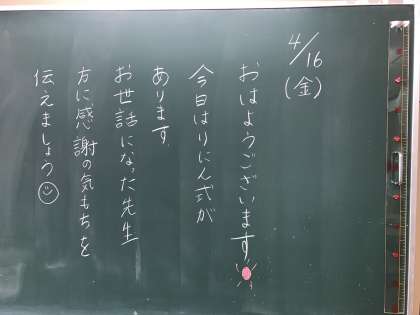 4/16
(金)
おはようございます
今日はりにん式が
あります。
お世話になった先生
方に感謝の気もちを
伝えましょう